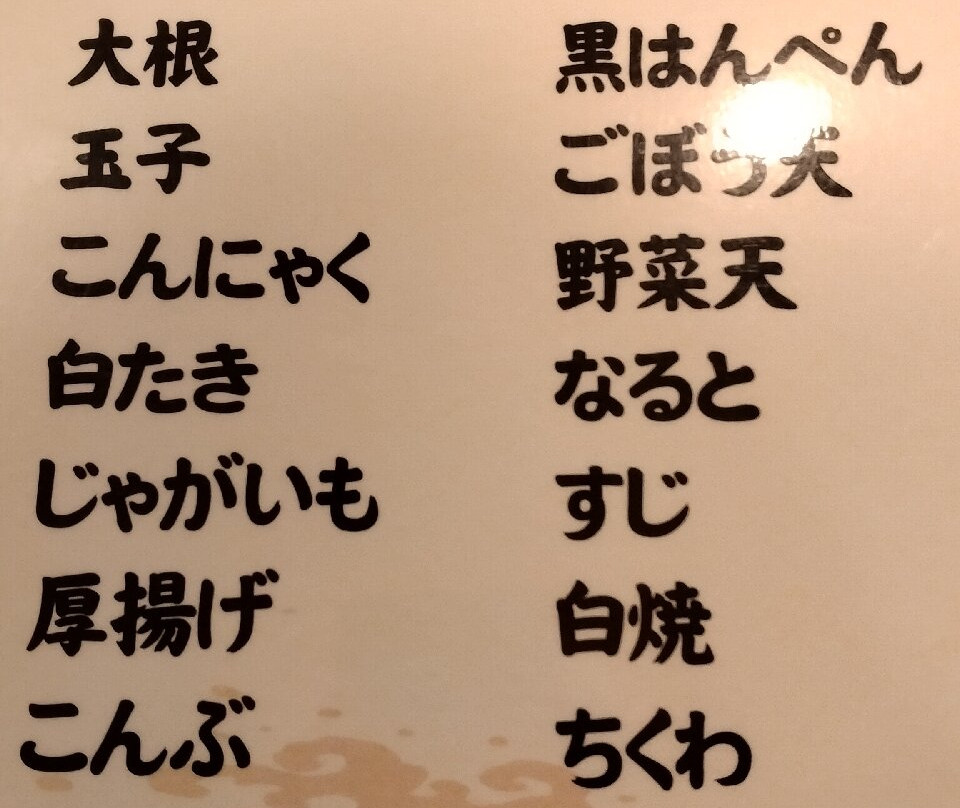 大根
玉子
こんにゃく
白たき
じゃがいも
厚揚げ
こんぶ
黒はんぺん
ごぼう天
野菜天
なると
すじ
白焼
ちくわ